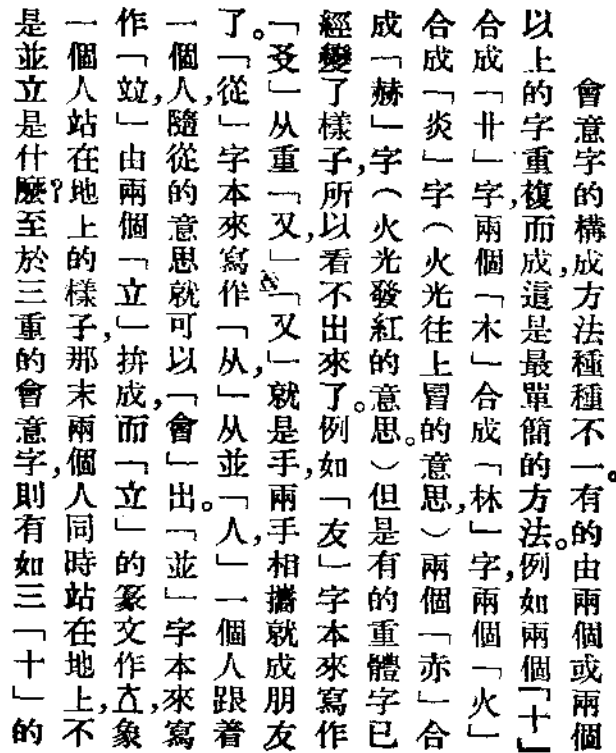 會意字的構成方法種種不一。有的由兩個或兩個
以上的字重複而成，這是最單簡的方法。例如兩個「十」
合成「卄」字，兩個「木」合成「林」字，兩個「火」
合成「炎」字（火光往上冒的意思，）兩個「赤」合
成「赫」字（火光發紅的意思。）但是有的重體字已
經變了樣子，所以看不出來了。例如「友」字本來寫作
「㕛」从重「又，」「又」就是手，兩手相攜就成朋友
了。「從」字本來寫作「从，」从並「人，」一個人跟着
一個人，隨從的意思就可以「會」出。「並」字本來寫
作「竝，」由兩個「立」拚成，而「立」的篆文作，象
一個人站在地上的樣子，那末兩個人同時站在地上，不
是並立是什麽？至於三重的會意字，則有如三「十」的